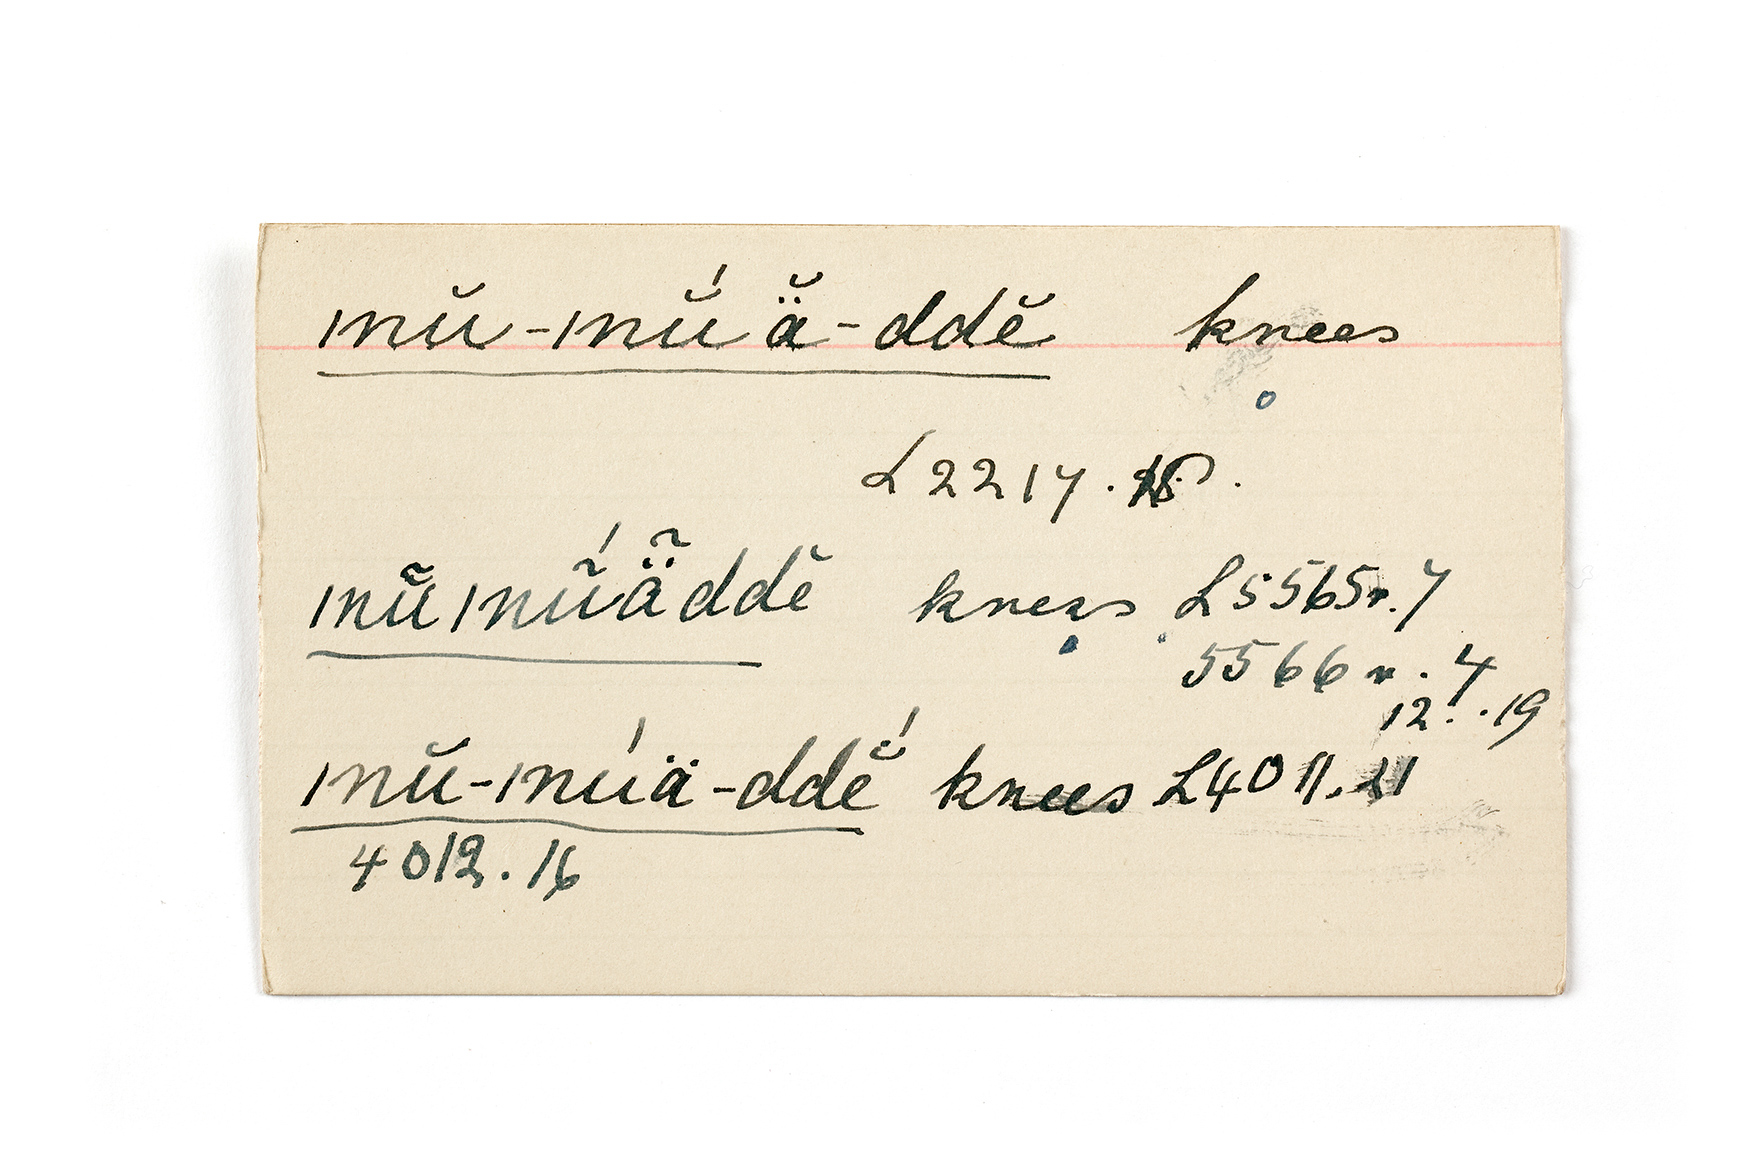 mŭ-mŭ́ä̆-ddĕ knees
L2217.
mũmṹä̃ddĕ knees L5565r.7
5566r.4
12..19
mŭ-múä-ddĕ́ knees L4011.11
4012.16